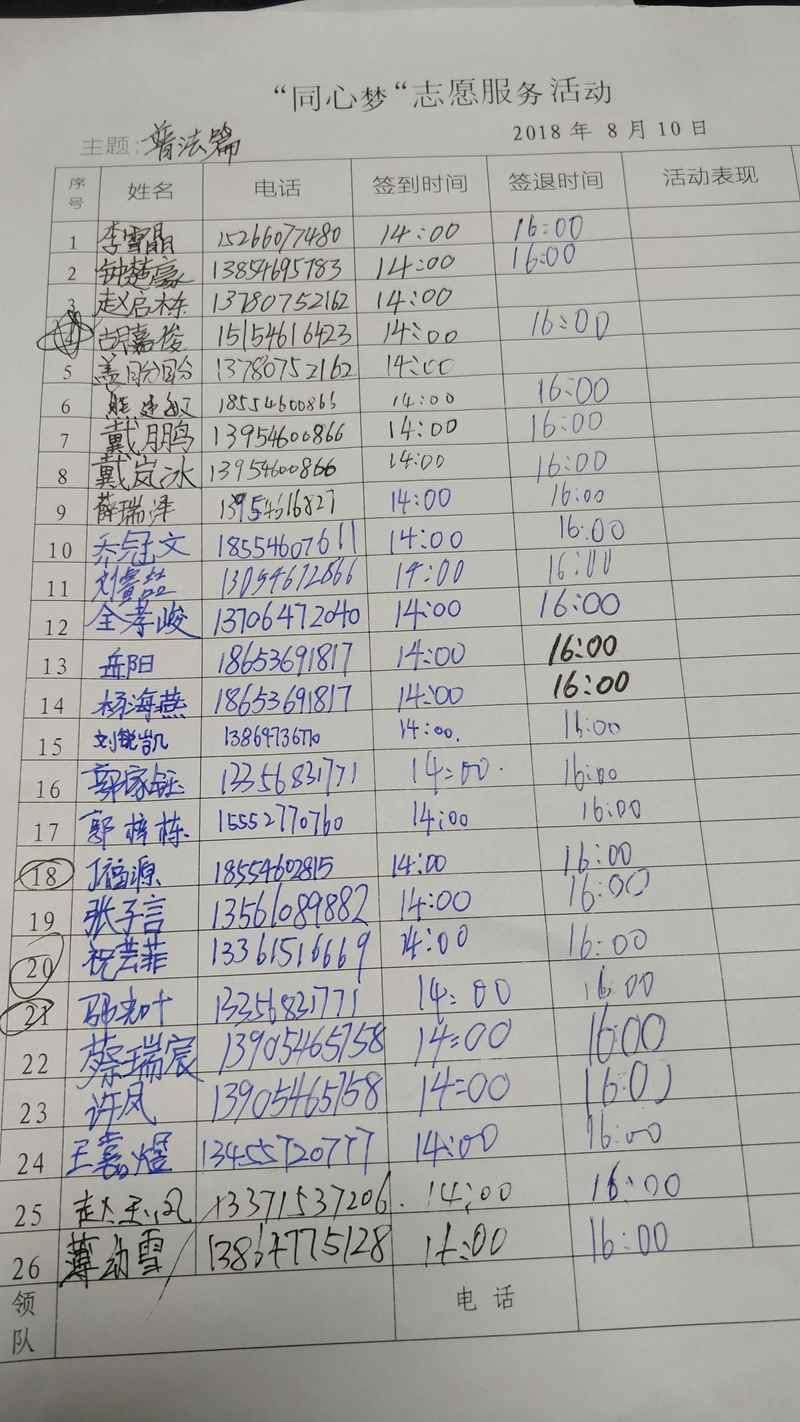 “同心梦“志愿服务活动
主题:普法篇 2018年 8月10日
序号 姓名 电话 签到时间 签退时间 活动表现
1 李雪晶 15266077480 14:00 16:00
2 钟楚豪 13854695783 14:00 16:00
3 赵启栋 13780752162 14:00
4 胡嘉俊 15154616423 14:00 16:00
5 盖盼盼 13780752162 14:00
6 18554600866 14:00 16:00
7 戴鹏 13954600866 14:00 16:00
8 戴岚冰 13954600866 14:00 16:00
9 薛瑞泽 13954616827 14:00 16:00
10 乔冠文 18554607611 14:00 16:00
11 14:00 16:00
12 全孝峻 13706472040 14:00 16:00
13 岳阳 18653691817 14:00 16:00
14 杨海燕 18653691817 14:00 16:00
15 刘锐凯 14:00. 16:00
16 郭家钰 13356831771 14:00 16:00
17 郭梓栋 15552770760 14:00 16:00
18 丁福源 18554602815 14:00 16:00
19 张子言 13561089882 14:00 16:00
20 祝芸菲 13361516669 14:00 16:00
21 13356831771 14:00 16:00
22 蔡瑞宸 13905465758 14:00 16:00
23 许凤 13905465758 14:00 16:00
24 王嘉煜 13455720777 14:00 16:00
25 13371537206. 14:00 16:00
26 薄动雪 14:00 16:00
领队 电话